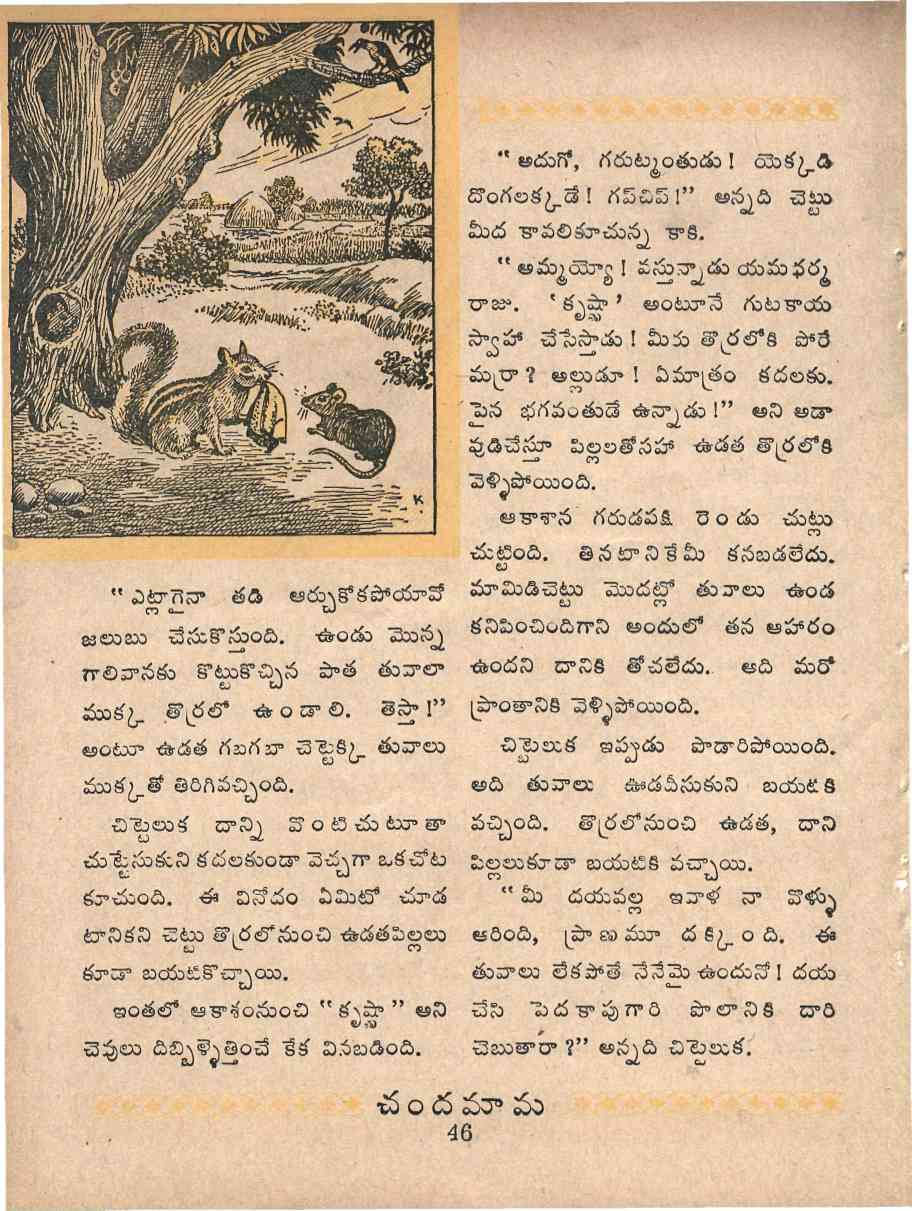 “ ఎట్లాగైనా తడి ఆర్చుకోకపోయావో
జలుబు చేసుకొస్తుంది. ఉండు మొన్న
గాలివానకు కొట్టుకొచ్చిన పాత తువాలా
ముక్క తొర్రలో ఉండాలి. తెస్తా!”
అంటూ ఉడత గబగబా చెట్టెక్కి తువాలు
ముక్కతో తిరిగివచ్చింది.
చిట్టెలుక దాన్ని వొంటిచుటూతా
చుట్టేసుకుని కదలకుండా వెచ్చగా ఒకచోట
కూచుంది. ఈ వినోదం ఏమిటో చూడ
టానికని చెట్టు తొర్రలోనుంచి ఉడతపిల్లలు
కూడా బయటికొచ్చాయి.
ఇంతలో ఆకాశంనుంచి “ కృష్ణా ” అని
చెవులు దిబ్బిళ్ళెత్తించే కేక వినబడింది.
“ అదుగో, గరుట్మంతుడు! యెక్కడి
దొంగలక్కడే! గప్‌చిప్!” అన్నది చెట్టు
మీద కావలికూచున్న కాకి.
“ అమ్మయ్యో! వస్తున్నాడు యమధర్మ
రాజు. ‘కృష్ణా’ అంటూనే గుటకాయ
స్వాహా చేసేస్తాడు! మీకు తొర్రలోకి పోరే
మర్రా? అల్లుడూ! ఏమాత్రం కదలకు.
పైన భగవంతుడే ఉన్నాడు!” అని అడా
వుడిచేస్తూ పిల్లలతోసహా ఉడత తొర్రలోకి
వెళ్ళిపోయింది.
ఆకాశాన గరుడపక్షి రెండు చుట్లు
చుట్టింది. తినటానికేమీ కనబడలేదు.
మామిడిచెట్టు మొదట్లో తువాలు ఉండ
కనిపించిందిగాని అందులో తన ఆహారం
ఉందని దానికి తోచలేదు. అది మరో
ప్రాంతానికి వెళ్ళిపోయింది.
చిట్టెలుక ఇప్పుడు పొడారిపోయింది.
అది తువాలు ఊడవీసుకుని బయటికి
వచ్చింది. తొర్రలోనుంచి ఉడత, దాని
పిల్లలుకూడా బయటికి వచ్చాయి.
“ మీ దయవల్ల ఇవాళ నా వొళ్ళు
ఆరింది, ప్రాణమూ దక్కింది. ఈ
తువాలు లేకపోతే నేనేమై ఉందునో! దయ
చేసి పెదకాపుగారి పొలానికి దారి
చెబుతారా?” అన్నది చిట్టెలుక.
చందమామ
46
K